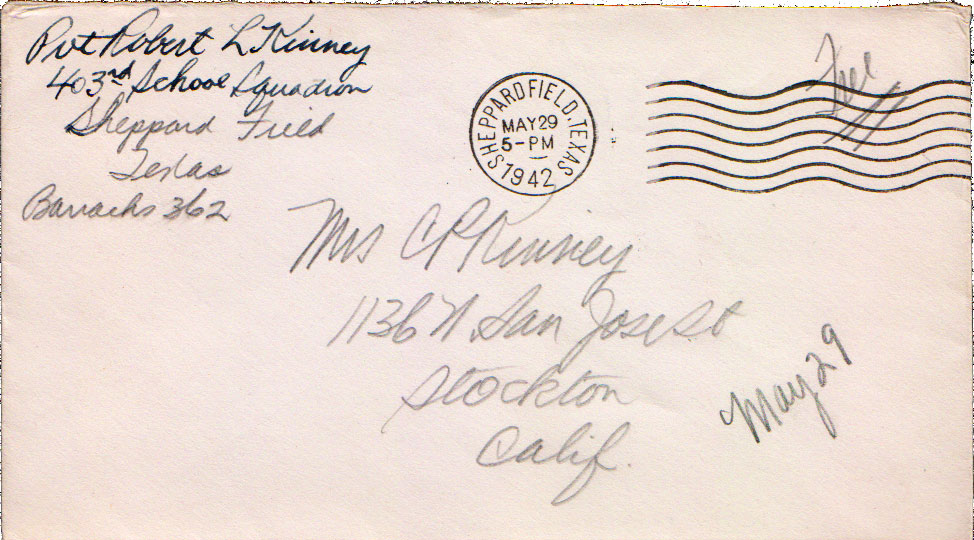 Pvt Robert L Kinney
403rd School Squadron
Sheppard Field
Texas
Barracks 362
SHEPPARD FIELD, TEXAS
MAY 29
5-PM
1942
Free
Mrs C P Kinney
1136 N. San Jose St
Stockton
Calif.
May 29